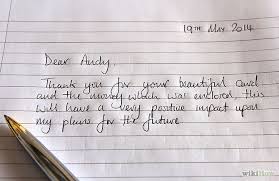 19TH Mar 2014
Dear Andy,
Thank you for your beautiful card
and the money which was enclosed, this
will have a very positive impact upon
my plans for the future.
wikiHow